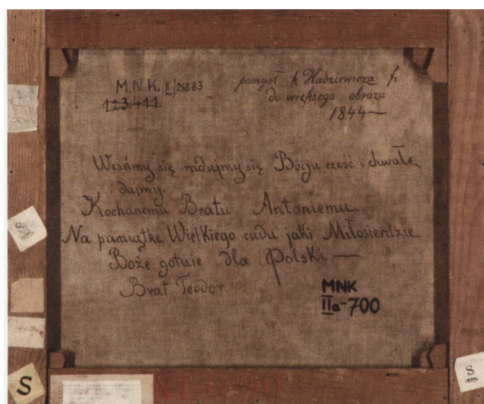 M.N.K. II/28883
123411
pomysł k. Hadziewicza fr
do większego obrazu
1844—
Weselmy się radujmy się Bogu cześć i chwałe
dajmy.
Kochanemu Bratu Antoniemu
Na pamiątke Wielkiego cudu jaki Miłosierdzie
Boże gotuje dla Polski —
Brat Teodor
MNK
IIa-700
S
S
S